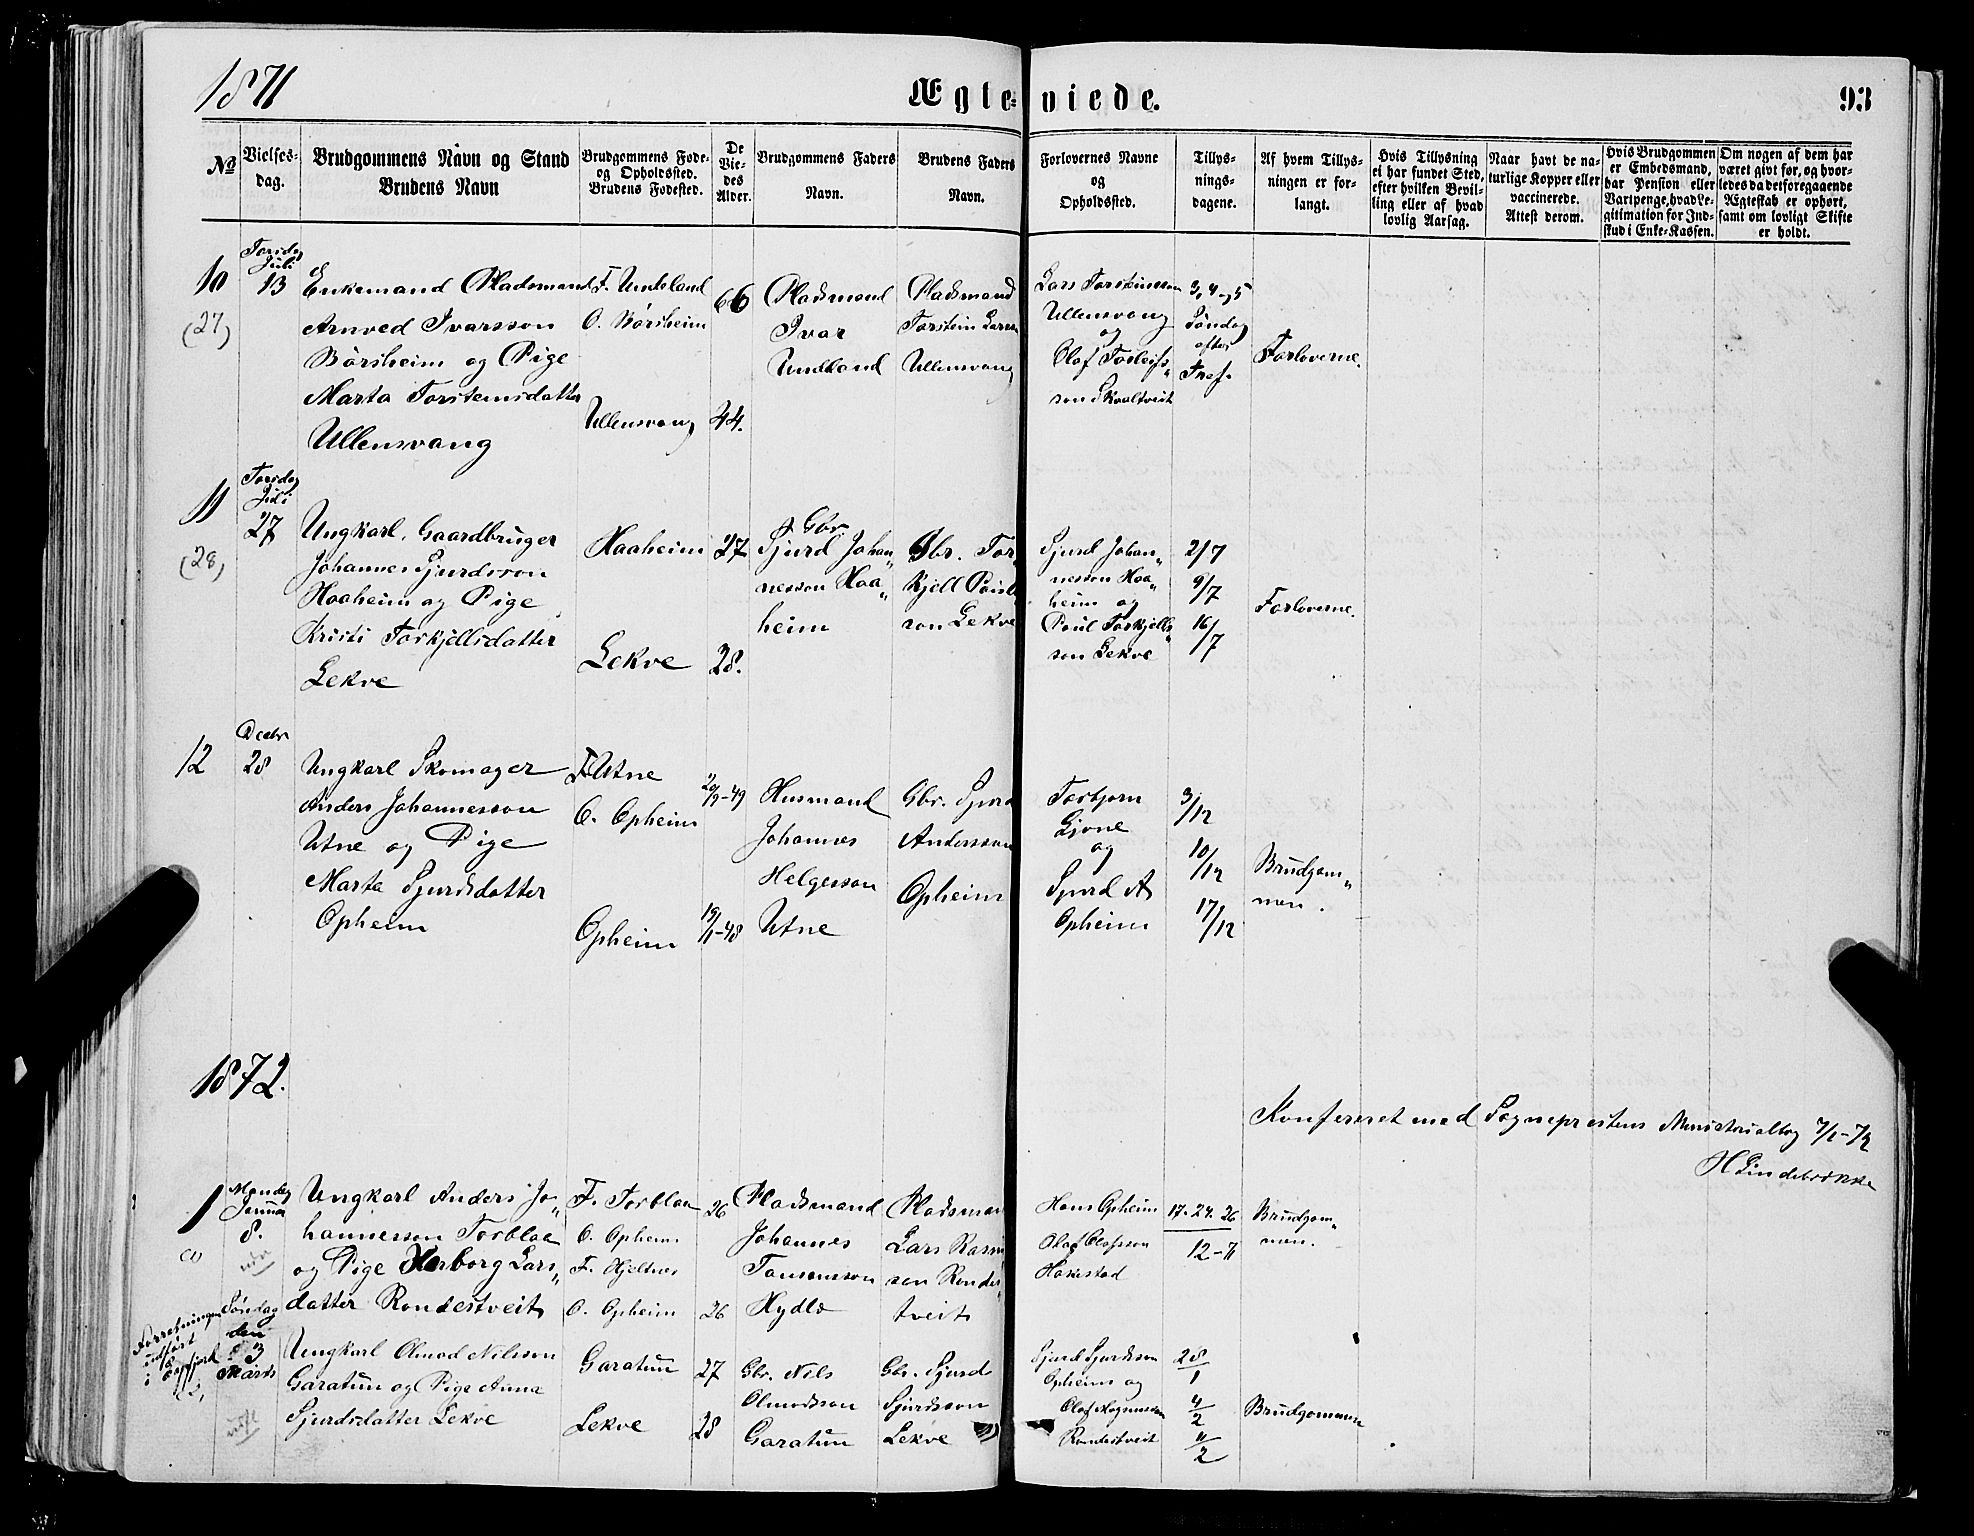 1871
Ægteviede.
93
No
Vielsesdag.
Brudgommens Navn og Stand
Brudens Navn
Brudgommens Føde-
og Opholdssted.
Brudens Fødested.
De
Vie-
des
Alder.
Brudgommens Faders
Navn.
Brudens Faders
Navn.
Forlovernes Navne
og
Opholdssted.
Tillys-
nings-
dagene.
Af hvem Tillys-
ningen er for-
langt.
Hvis Tillysning
ei har fundet Sted,
efter hvilken Bevil-
ling eller af hvad
lovlig Aarsag.
Naar havt de na-
turlige Kopper eller
vaccinerede.
Attest derom.
Hvis Brudgommen
er Embedsmand,
har Pension eller
Vartpenge, hvad Le-
gitimation for Ind-
skud i Enke-Kassen.
Om nogen af dem har
været givt før, og hvor-
ledes da det foregaaende
Ægteskab er ophørt,
samt om lovligt Skifte
er holdt.
10
(27)
Torsdag
Juli
13
Enkemand Pladsmand
Arnved Ivarsson
Børsheim og Pige
Marta Torsteinsdatter
Ullensvang
F. Undeland
O. Børsheim
Ullensvang
66
44.
Pladsmand
Ivar
Undeland
Pladsmand
Torstein Larsson
Ullensvang
Lars Torsteinsson
Ullensvang
og
Olaf Torleifs"
son Skaaltveit
3, 4 og 5
Søndag
efter
Tref.
Forloverne.
11
(28)
Torsdag
Juli
27
Ungkarl, Gaardbruger
Johannes Sjurdsson
Haaheim og Pige
Kristi Torkjellsdatter
Lekve
Haaheim
Lekve
27
28.
Gbr.
Sjurd Johan"
nesson Haa"
heim
Gbr. Tor
kjell Pouls
son Lekve
Sjurd Johan"
nesson Haa"
heim og
Poul Torkjells"
son Lekve
2/7
9/7
16/7
Forloverne.
12
Decbr
28
Ungkarl Skomager
Anders Johannesson
Utne og Pige
Marta Sjurdsdatter
Opheim
F. Utne
O. Opheim
Opheim
20/9-49
19/1-48
Husmand
Johannes
Helgesson
Utne
Gbr. Sjurd
Andersson
Opheim
Torbjørn
Gjøne
og
Sjurd A
Opheim
3/12
10/12
17/12
Brudgom"
men.
1872.
Konfereret med Sogneprestens Ministerialbog 7/1-72
H Lindebrække
1
(1)
Mandag
Januar
8.
Ungkarl Anders Jo"
hannesson Torbloe
og Pige Herborg Lars"
datter Rondestveit
F. Torbloe
O. Opheim
F. Hjeltnes
O. Opheim
26
26
Pladsmand
Johannes
Tormonsson
Hydle
Pladsman
Lars Rasm
son Rondes"
tveit
Hans Opheim
Olaf Olafsson
Hakestad
17. 24. 26
12-71
Brudgom"
men.
Forretningen
udført
i Eidfjord
(2)
Søndag
den
3
Marts
Ungkarl Olmod Nilsson
Garatun og Pige Anna
Sjurdsdatter Lekve
Garatun
Lekve
27
28
Gbr. Nils
Olmodsson
Garatun
Gbr. Sjurd
Sjurdsson
Lekve
Sjurd Sjurdsson
Opheim og
Olaf Magnusson
Rondestveit
28/1
4/2
11/2
Brudgommen